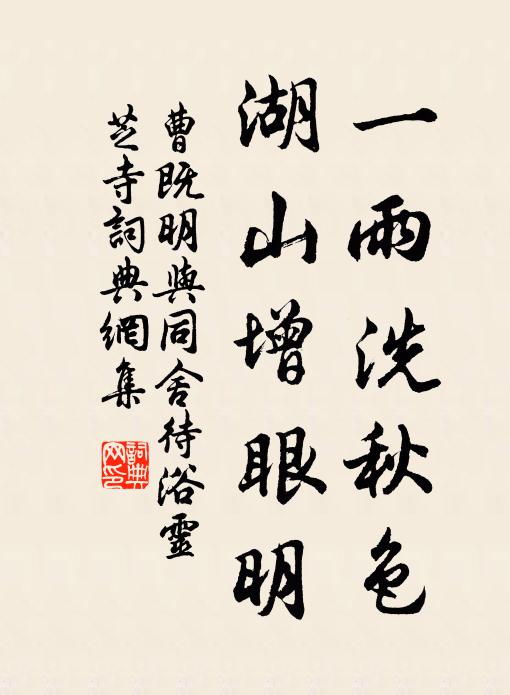 一雨洗秋色
湖山增眼明
曹既明與同舍待浴靈
芝寺詞典網集
詞典
网印